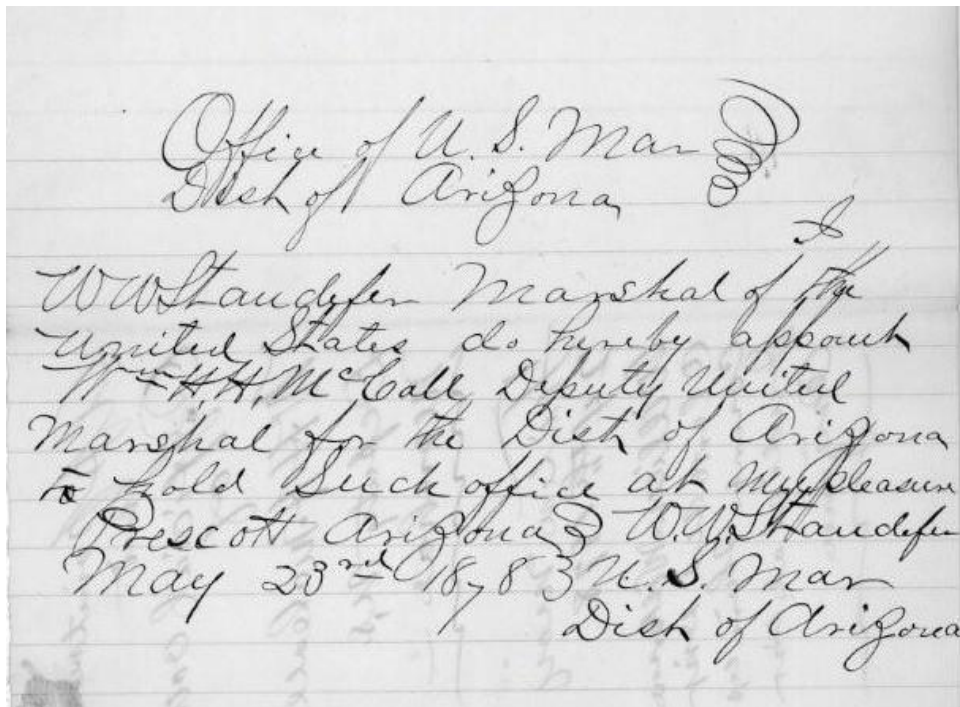 Office of U. S. Mar
Dist of Arizona
I
W W Standefer Marshal of the
United States do hereby appoint
Wm H. H. McCall Deputy United
Marshal for the Dist of Arizona
to hold Such office at my pleasure
Prescott Arizona } W. W. Standefer
May 23rd 1878 } U. S. Mar
Dist of Arizona